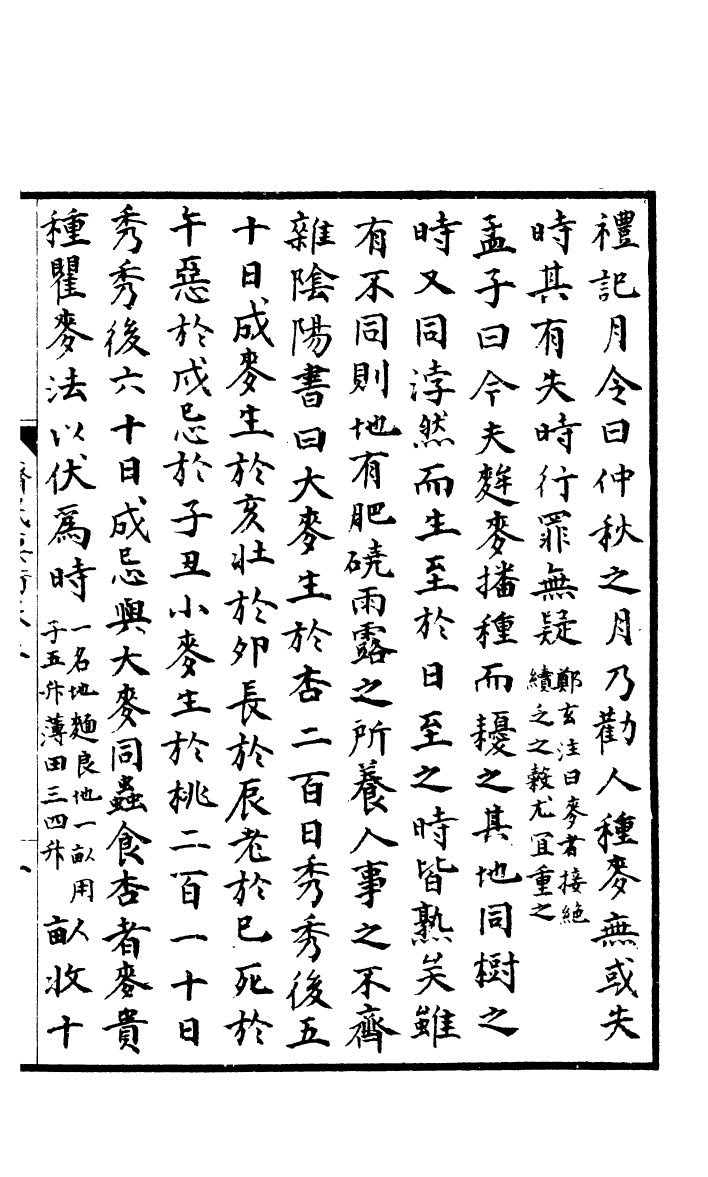 禮記月令曰仲秋之月乃勸人種麥無或失
時其有失時行罪無疑鄭玄注曰麥者接絶續乏之榖尤宜重之
孟子曰今夫麰麥播種而耰之其地同樹之
時又同浡然而生至於日至之時皆熟矣雖
有不同則地有肥磽雨露之所養人事之不齊
雜陰陽書曰大麥生於杏二百日秀秀後五
十日成麥生於亥壯於卯長於辰老於巳死於
午惡於戍忌於子丑小麥生於桃二百一十日
秀秀後六十日成忌與大麥同蟲食杏者麥貴
種瞿麥法以伏爲時一名地麵良地一畝用子五升薄田三四升畝收十